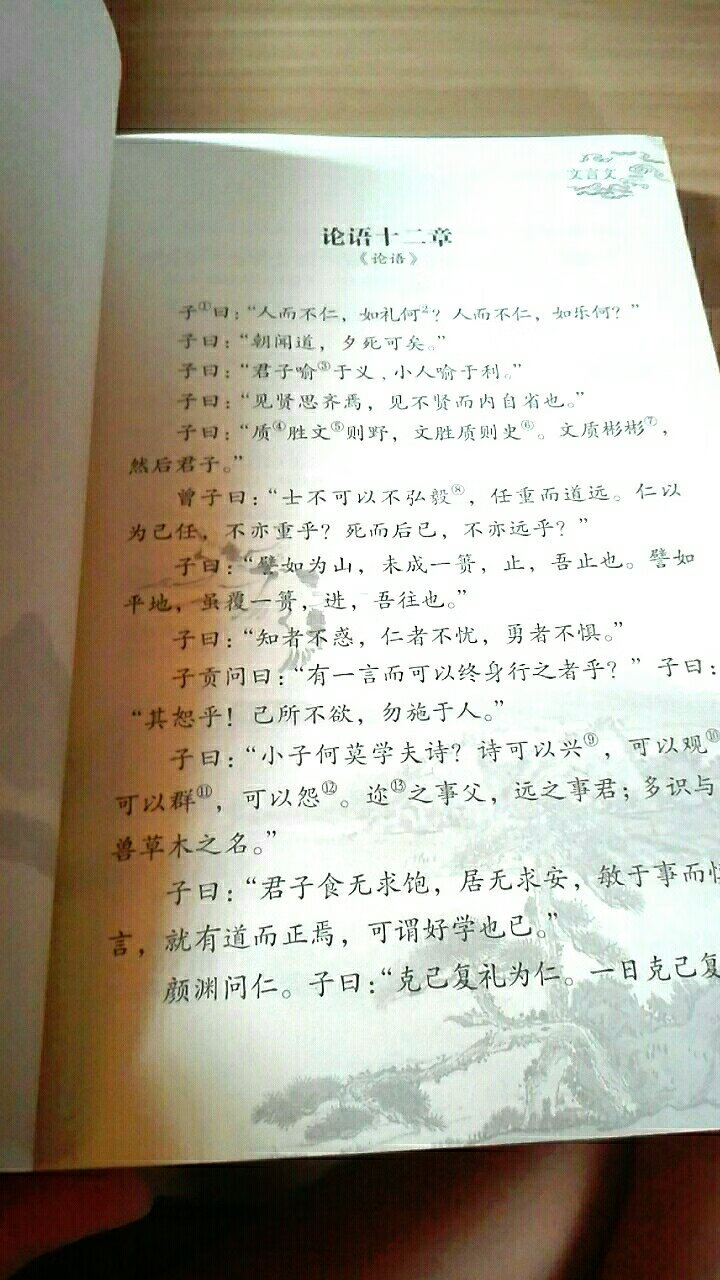 文言文
论语十二章
《论语》
子①曰：“人而不仁，如礼何²？人而不仁，如乐何？”
子曰：“朝闻道，夕死可矣。”
子曰：“君子喻③于义，小人喻于利。”
子曰：“见贤思齐焉，见不贤而内自省也。”
子曰：“质④胜文⑤则野，文胜质则史⑥。文质彬彬⑦，
然后君子。”
曾子曰：“士不可以不弘毅⑧，任重而道远。仁以
为己任，不亦重乎？死而后已，不亦远乎？”
子曰：“譬如为山，未成一篑，止，吾止也。譬如
平地，虽覆一篑，进，吾往也。”
子曰：“知者不惑，仁者不忧，勇者不惧。”
子贡问曰：“有一言而可以终身行之者乎？”子曰：
“其恕乎！己所不欲，勿施于人。”
子曰：“小子何莫学夫诗？诗可以兴⑨，可以观⑩
可以群⑪，可以怨⑫。迩⑬之事父，远之事君；多识与
兽草木之名。”
子曰：“君子食无求饱，居无求安，敏于事而
言，就有道而正焉，可谓好学也已。”
颜渊问仁。子曰：“克己复礼为仁。一日克己复